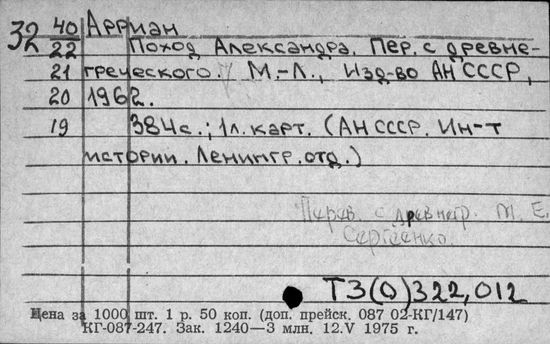 32 40 Арриан
22 Поход Александра. Пер. с древне-
21 греческого. М.-Л., Изд-во АН СССР,
20 1962.
19 384с.; 1л. карт. (АН СССР. Ин-т
истории. Ленингр. отд.)
Перев. с древнегр. М. Е.
Сергеенко
Т3(0)322,012
Цена за 1000 шт. 1 р. 50 коп. (доп. прейск. 087 02-КГ/147)
КГ-087-247. Зак. 1240—3 млн. 12.V 1975 г.